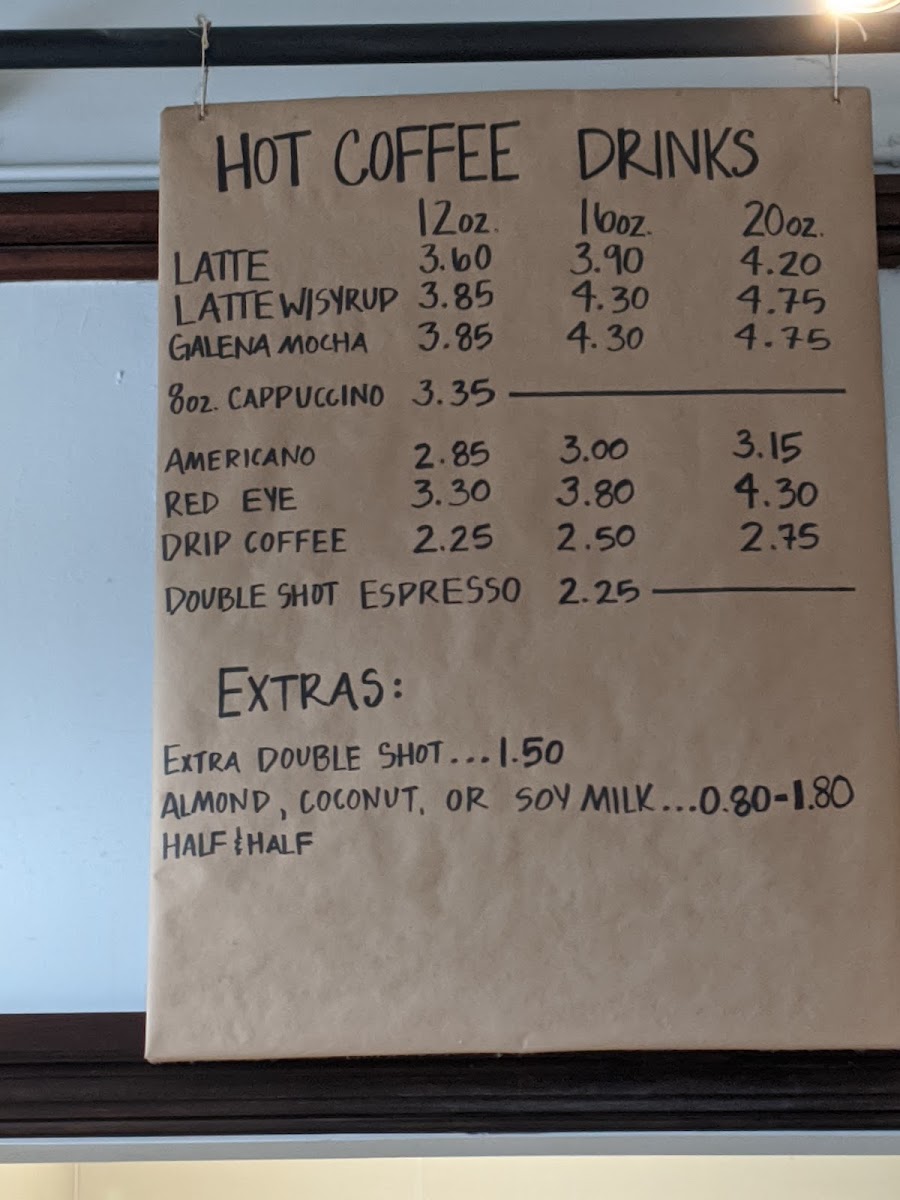 HOT COFFEE DRINKS
12oz. 16oz. 20oz.
LATTE 3.60 3.90 4.20
LATTE W/SYRUP 3.85 4.30 4.75
GALENA MOCHA 3.85 4.30 4.75
8oz. CAPPUCCINO 3.35
AMERICANO 2.85 3.00 3.15
RED EYE 3.30 3.80 4.30
DRIP COFFEE 2.25 2.50 2.75
DOUBLE SHOT ESPRESSO 2.25
EXTRAS:
EXTRA DOUBLE SHOT...1.50
ALMOND, COCONUT, OR SOY MILK...0.80-1.80
HALF & HALF